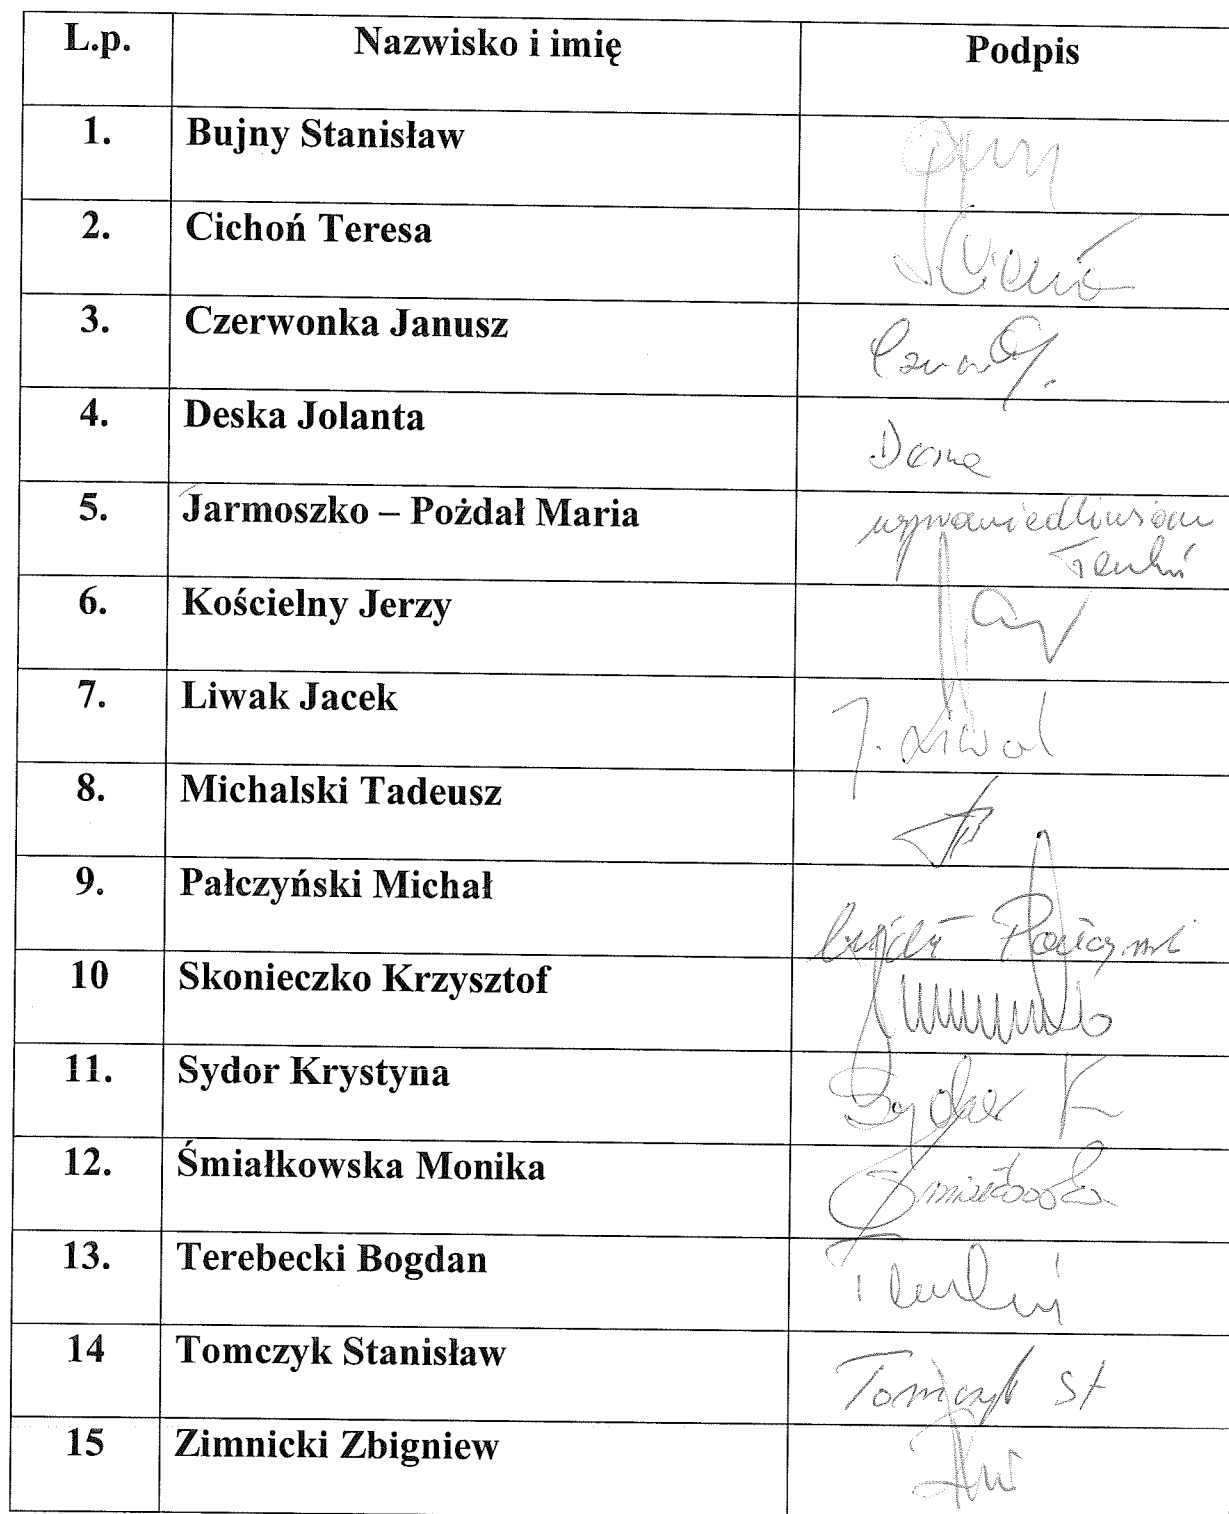 L.p. Nazwisko i imię Podpis
1. Bujny Stanisław
2. Cichoń Teresa
3. Czerwonka Janusz
4. Deska Jolanta
5. Jarmoszko – Pożdał Maria
6. Kościelny Jerzy
7. Liwak Jacek J. Liwak
8. Michalski Tadeusz
9. Pałczyński Michał
10 Skonieczko Krzysztof
11. Sydor Krystyna Sydor K
12. Śmiałkowska Monika
13. Terebecki Bogdan
14 Tomczyk Stanisław Tomczyk St
15 Zimnicki Zbigniew